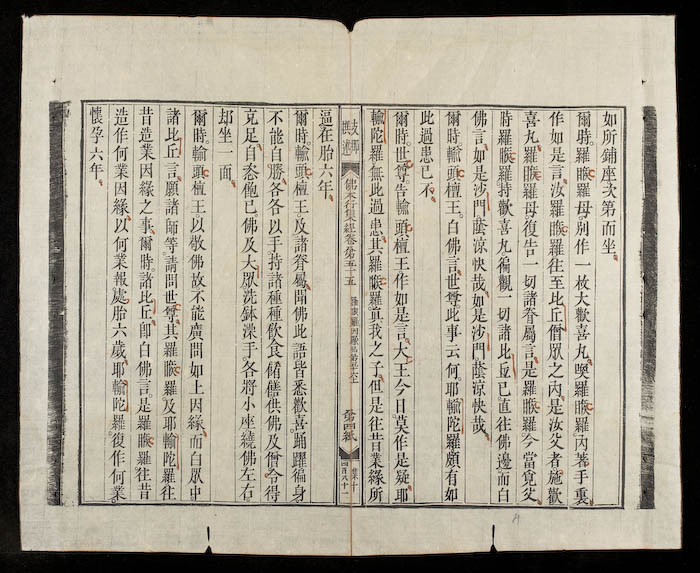 如所鋪座次第而坐
爾時羅睺羅母別作一枚大歡喜丸喚羅睺羅內著手裏
作如是言汝羅睺羅往至比丘僧眾之內是汝父者施歡
喜丸羅睺羅母復告一切諸眷屬言是羅睺羅今當覓父
時羅睺羅持歡喜丸徧觀一切諸比丘已直往佛邊而白
佛言如是沙門蔭涼快哉如是沙門蔭涼快哉
爾時輸頭檀王白佛言世尊此事云何耶輸陀羅頗有如
此過患已不
爾時世尊告輸頭檀王作如是言大王今日莫作是疑耶
輸陀羅無此過患其羅睺羅真我之子但是往昔業緣所
佛本行集經卷第五十五
第四紙
四百八十一
逼在胎六年
爾時輸頭檀王及諸眷屬聞佛此語皆悉歡喜踊躍徧身
不能自勝各各以手持諸種種飲食餚饍供佛及僧令得
充足自恣飽已佛及大眾洗鉢澡手各將小座繞佛左右
却坐一面
爾時輸頭檀王以敬佛故不能廣問如上因緣而白眾中
諸比丘言願諸師等請問世尊其羅睺羅及耶輸陀羅往
昔造業因緣之事爾時諸比丘卽白佛言是羅睺羅往昔
造作何業因緣以何業報處胎六歲耶輸陀羅復作何業
懷孕六年